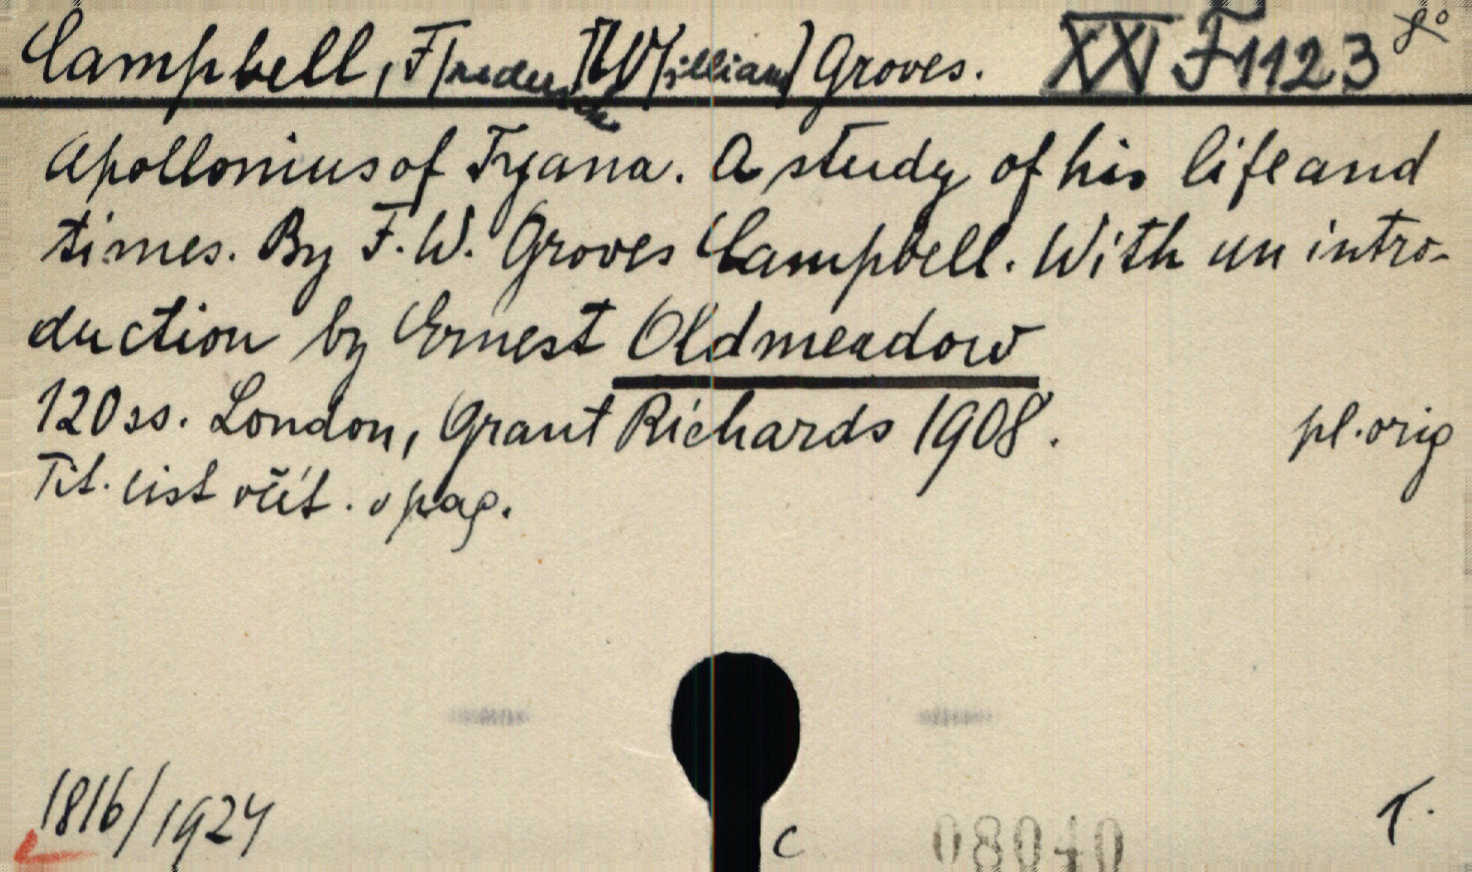 Campbell, F[rederick] W[illiam] Groves. XXI F 1123 8°
Apollonius of Tyana. A study of his life and
times. By F. W. Groves Campbell. With an intro-
duction by Ernest Oldmeadow
120 ss. London, Grant Richards 1908. pl. orig
Tit. list včít. v pag.
1816/1924
C
08040
T.